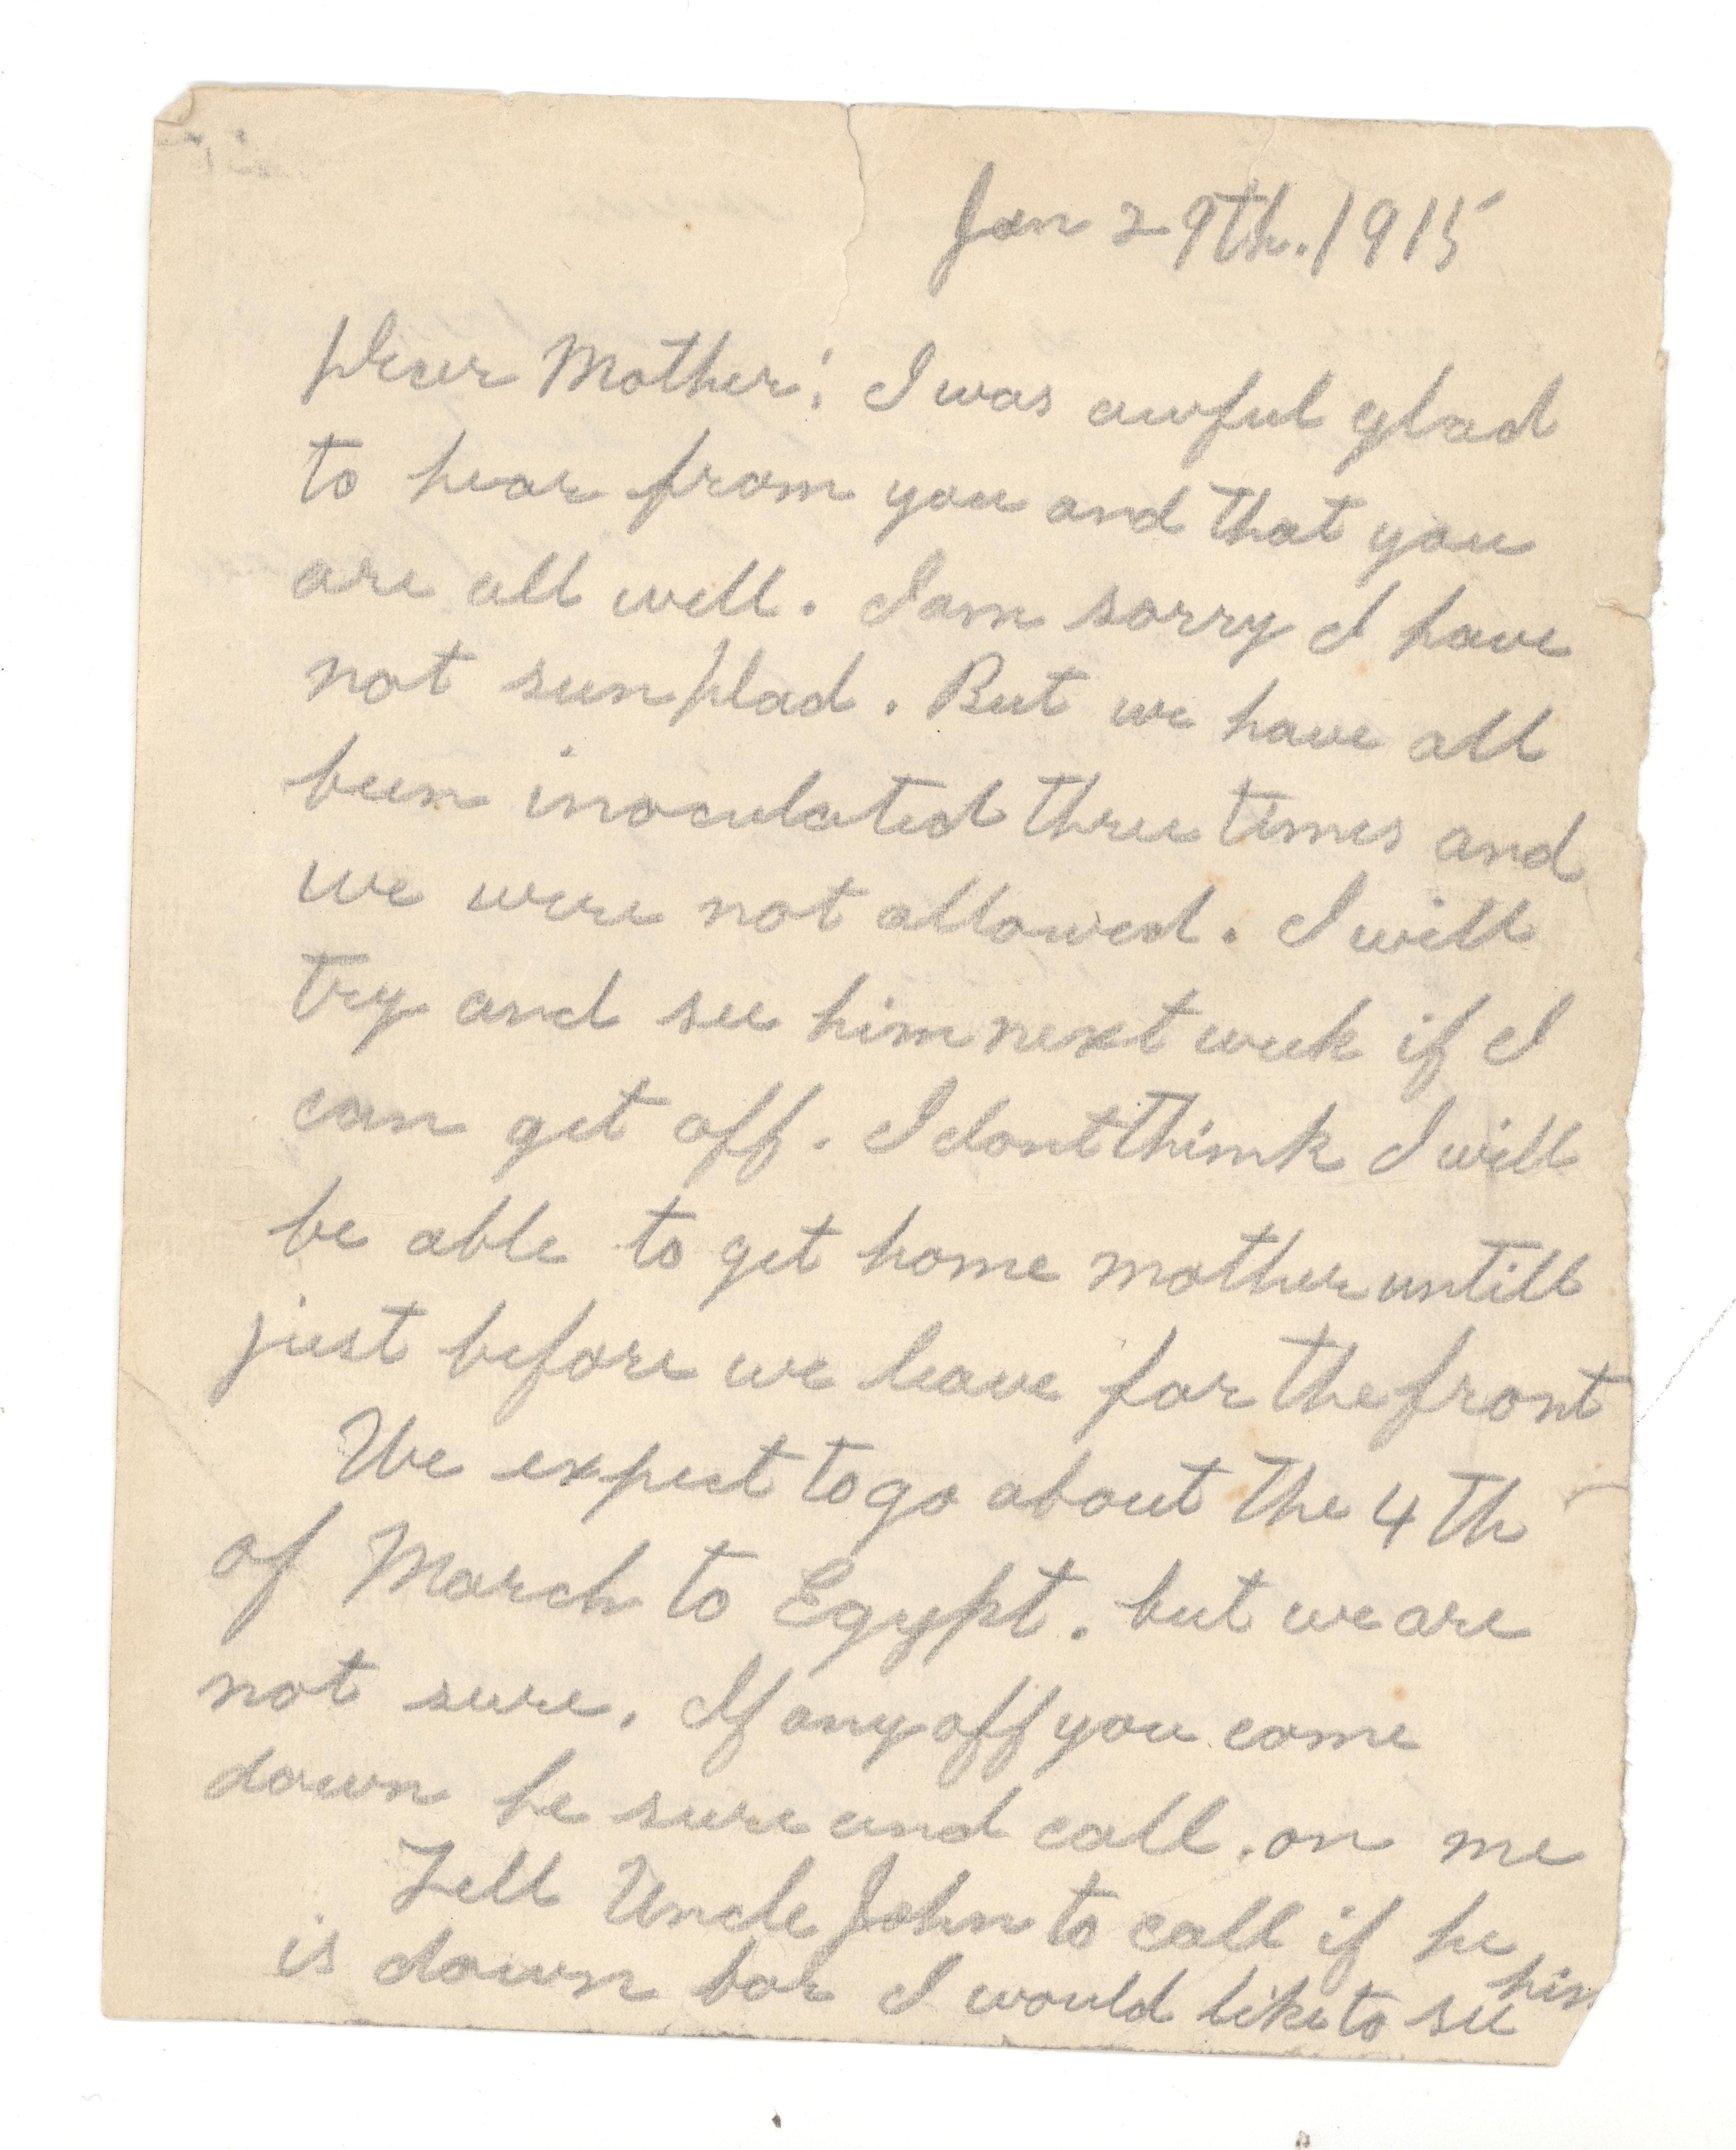 Jan 29th. 1915
Dear Mother: I was awful glad
to hear from you and that you
are all well. I am sorry I have
not seen Dad. But we have all
been inoculated three times and
we were not allowed. I will
try and see him next week if I
can get off. I dont think I will
be able to get home mother untill
just before we leave for the front
We expect to go about the 4th
of March to Egypt. but we are
not sure. If any off you come
down be sure and call. on me
Tell Uncle John to call if he
is down for I would like to see him